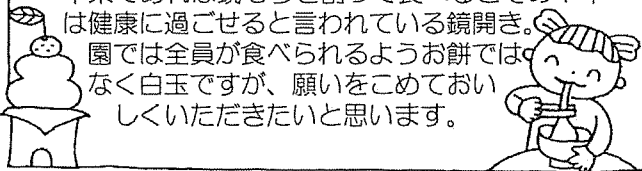 は健康に過ごせると言われている鏡開き。
園では全員が食べられるようお餅では
なく白玉ですが、願いをこめておい
しくいただきたいと思います。